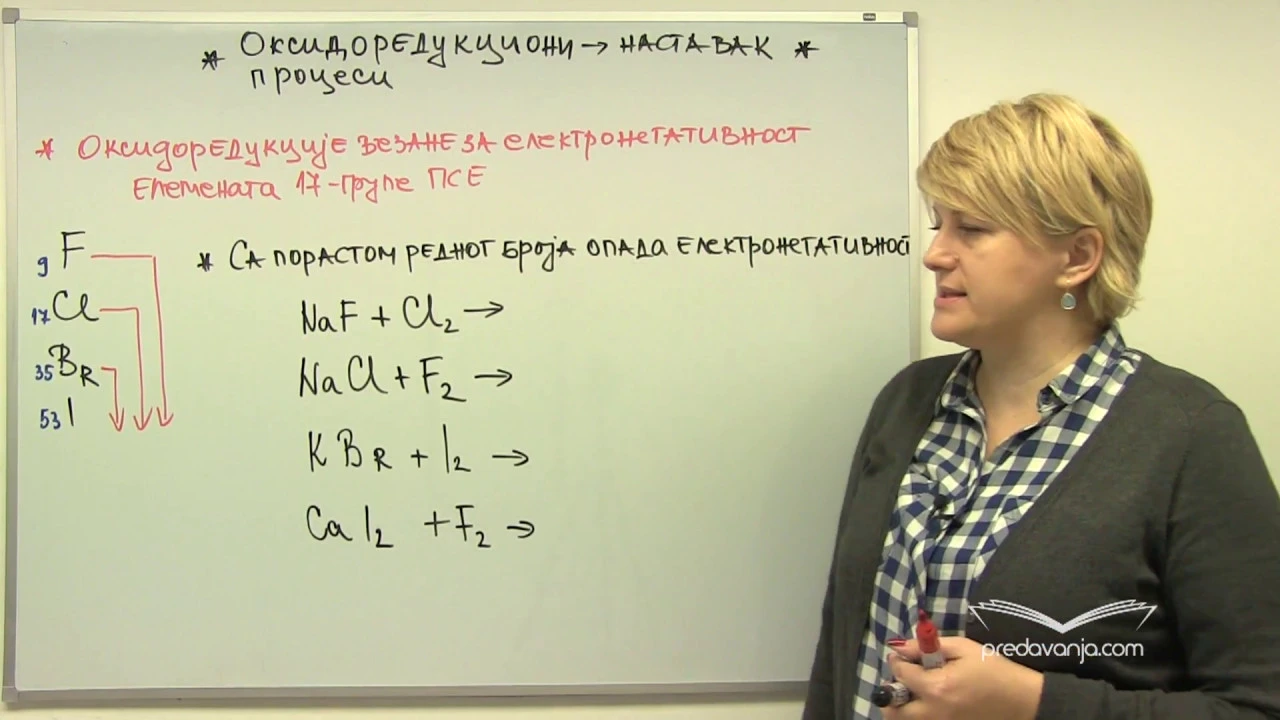 * Оксидоредукциони → наставак *
процеси
* Оксидоредукције везане за електронегативност
елемената 17-групе ПСЕ
* Са порастом редног броја опада електронегативност
9 F
17 Cl
35 Br
53 I
NaF + Cl₂ →
NaCl + F₂ →
KBr + I₂ →
CaI₂ + F₂ →
predavanja.com